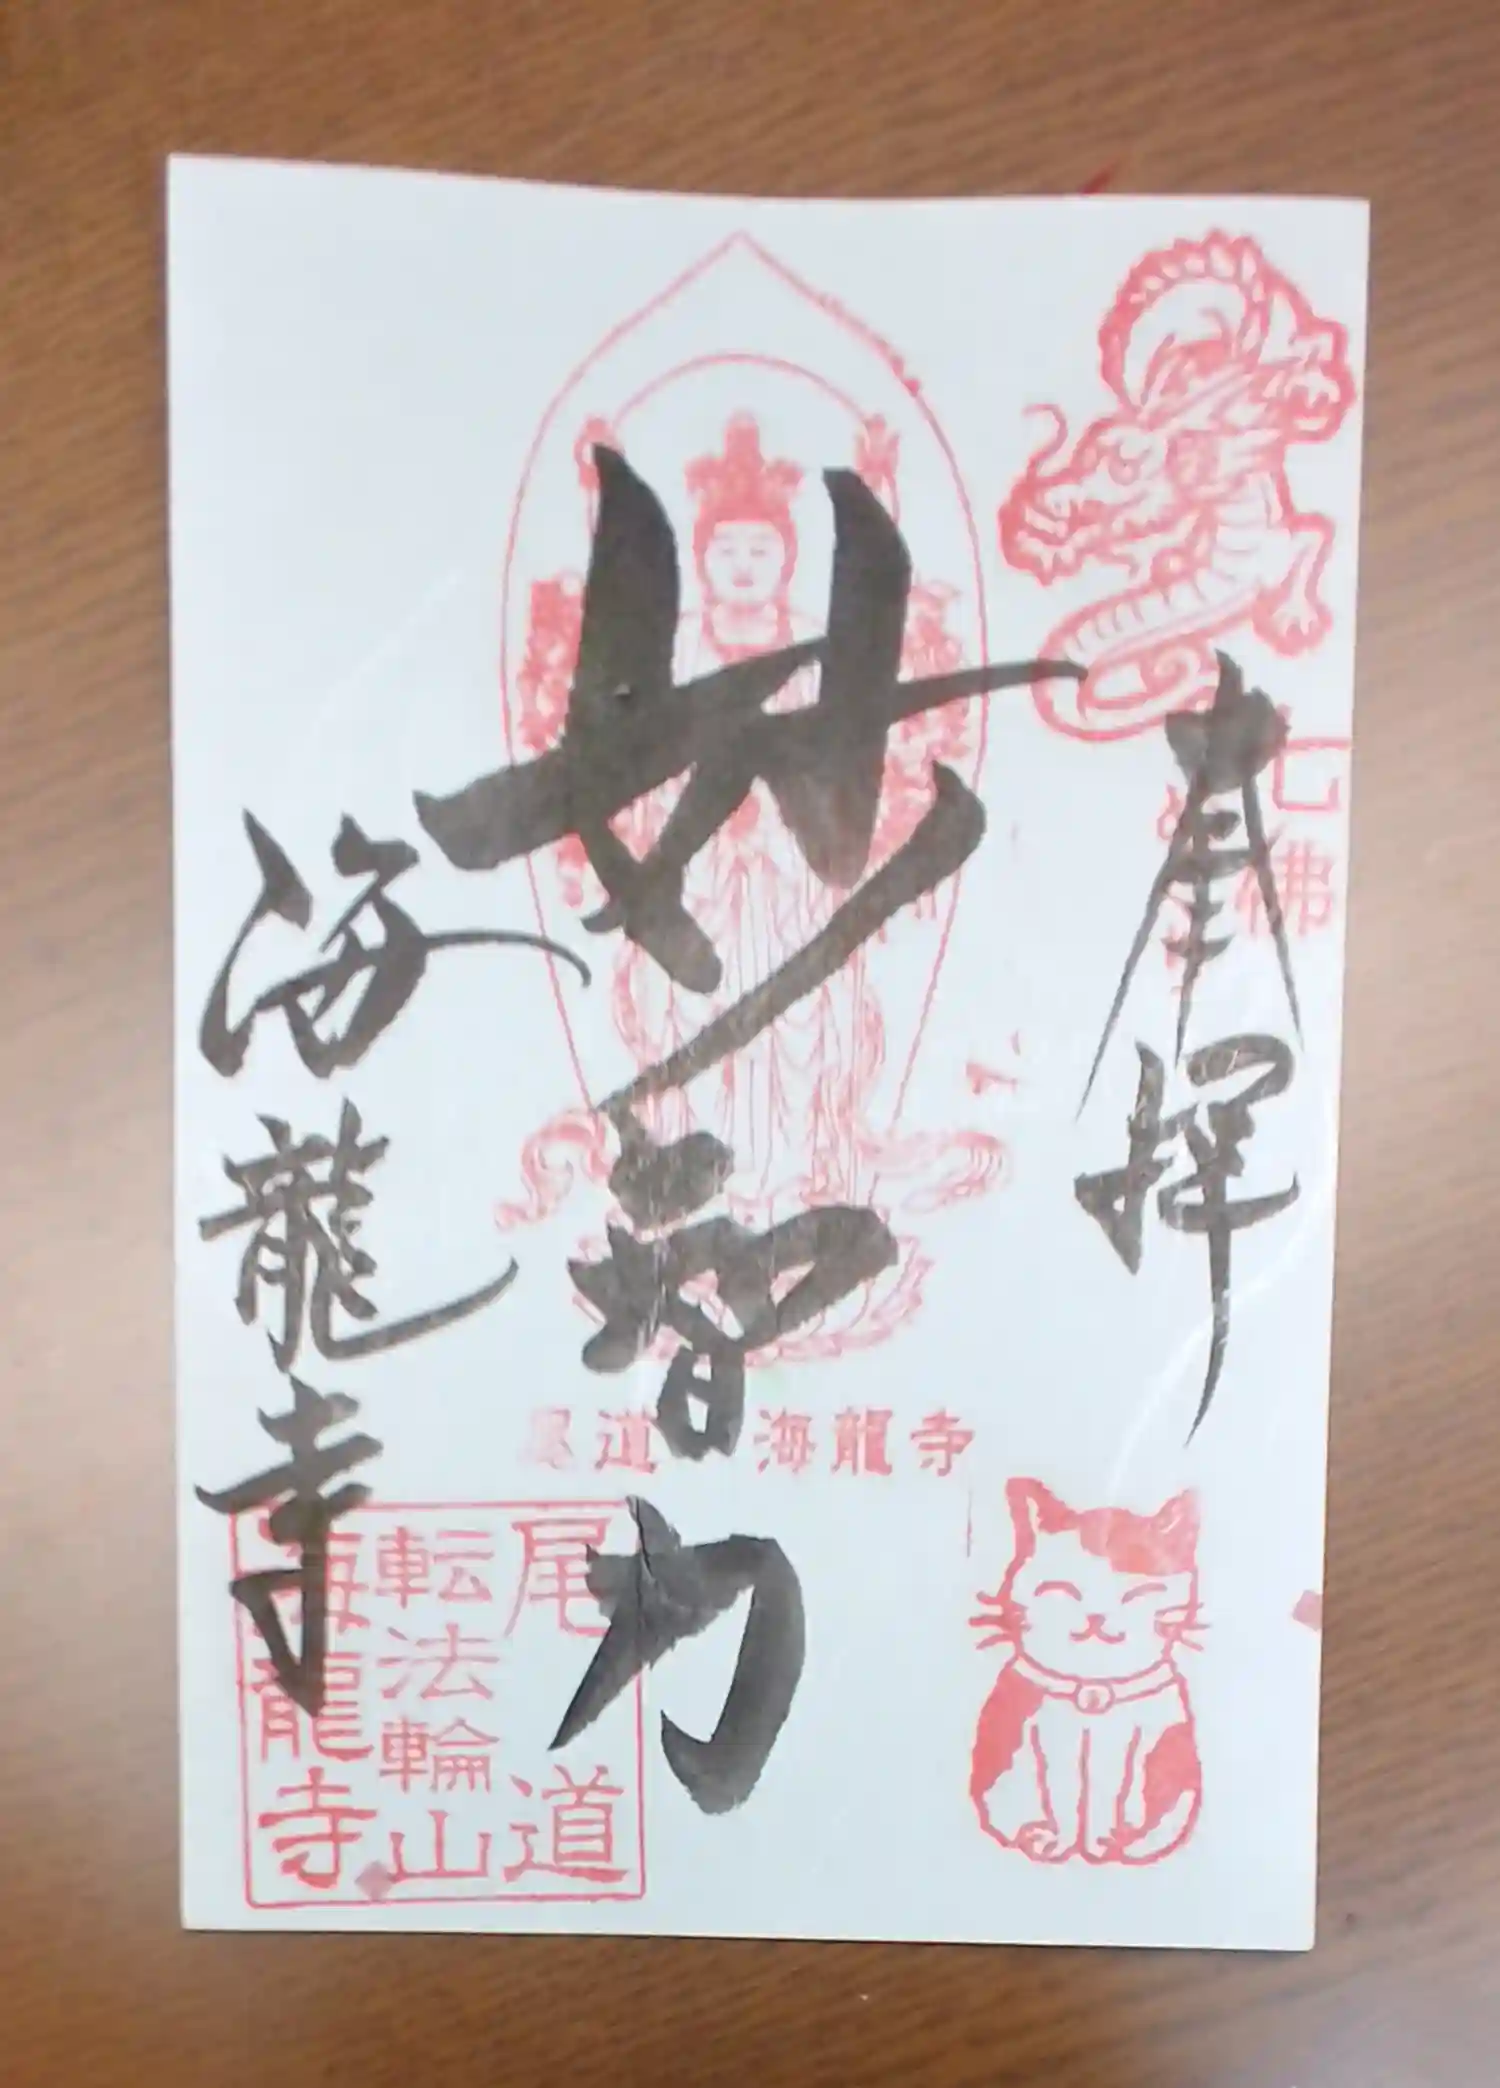 奉拝
七佛
妙智力
海龍寺
尾道 海龍寺
尾道
転法輪山
海龍寺